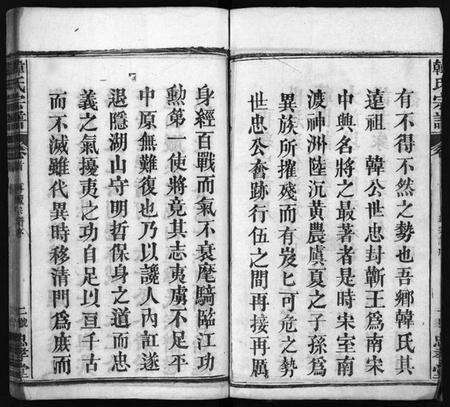 有不得不然之勢也吾鄉韓氏其
遠祖 韓公世忠封蘄王爲南宋
中興名將之最著者是時宋室南
渡神洲陸沉黃農虞夏之子孫爲
異族所摧殘而有岌岌可危之勢
世忠公奮跡行伍之間再接再厲
身經百戰而氣不衰麾騎臨江功
勲弟一使將竟其志夷虜不足平
中原無難復也乃以讒人內訌遂
退隱湖山守明哲保身之道而忠
義之氣擾夷之功自足以亘千古
而不滅雖代異時移清門爲庶而
韓氏宗譜